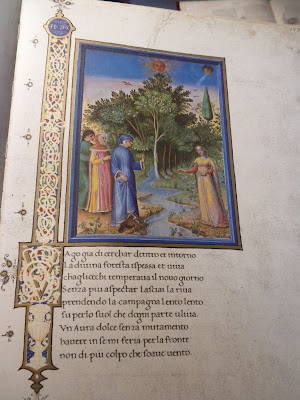 VAgo gia di cerchar dentro et intorno
La diuina foresta spessa et uiua
chagliocchi temperaua il nouo giorno
Senza piu aspectar lasciai la riua
prendendo la campagna lento lento
su per lo suol che dogni parte uliua.
Vn Aura dolce senza mutamento
hauere in se mi feria per la fronte
non di piu colpo che soaue uento.